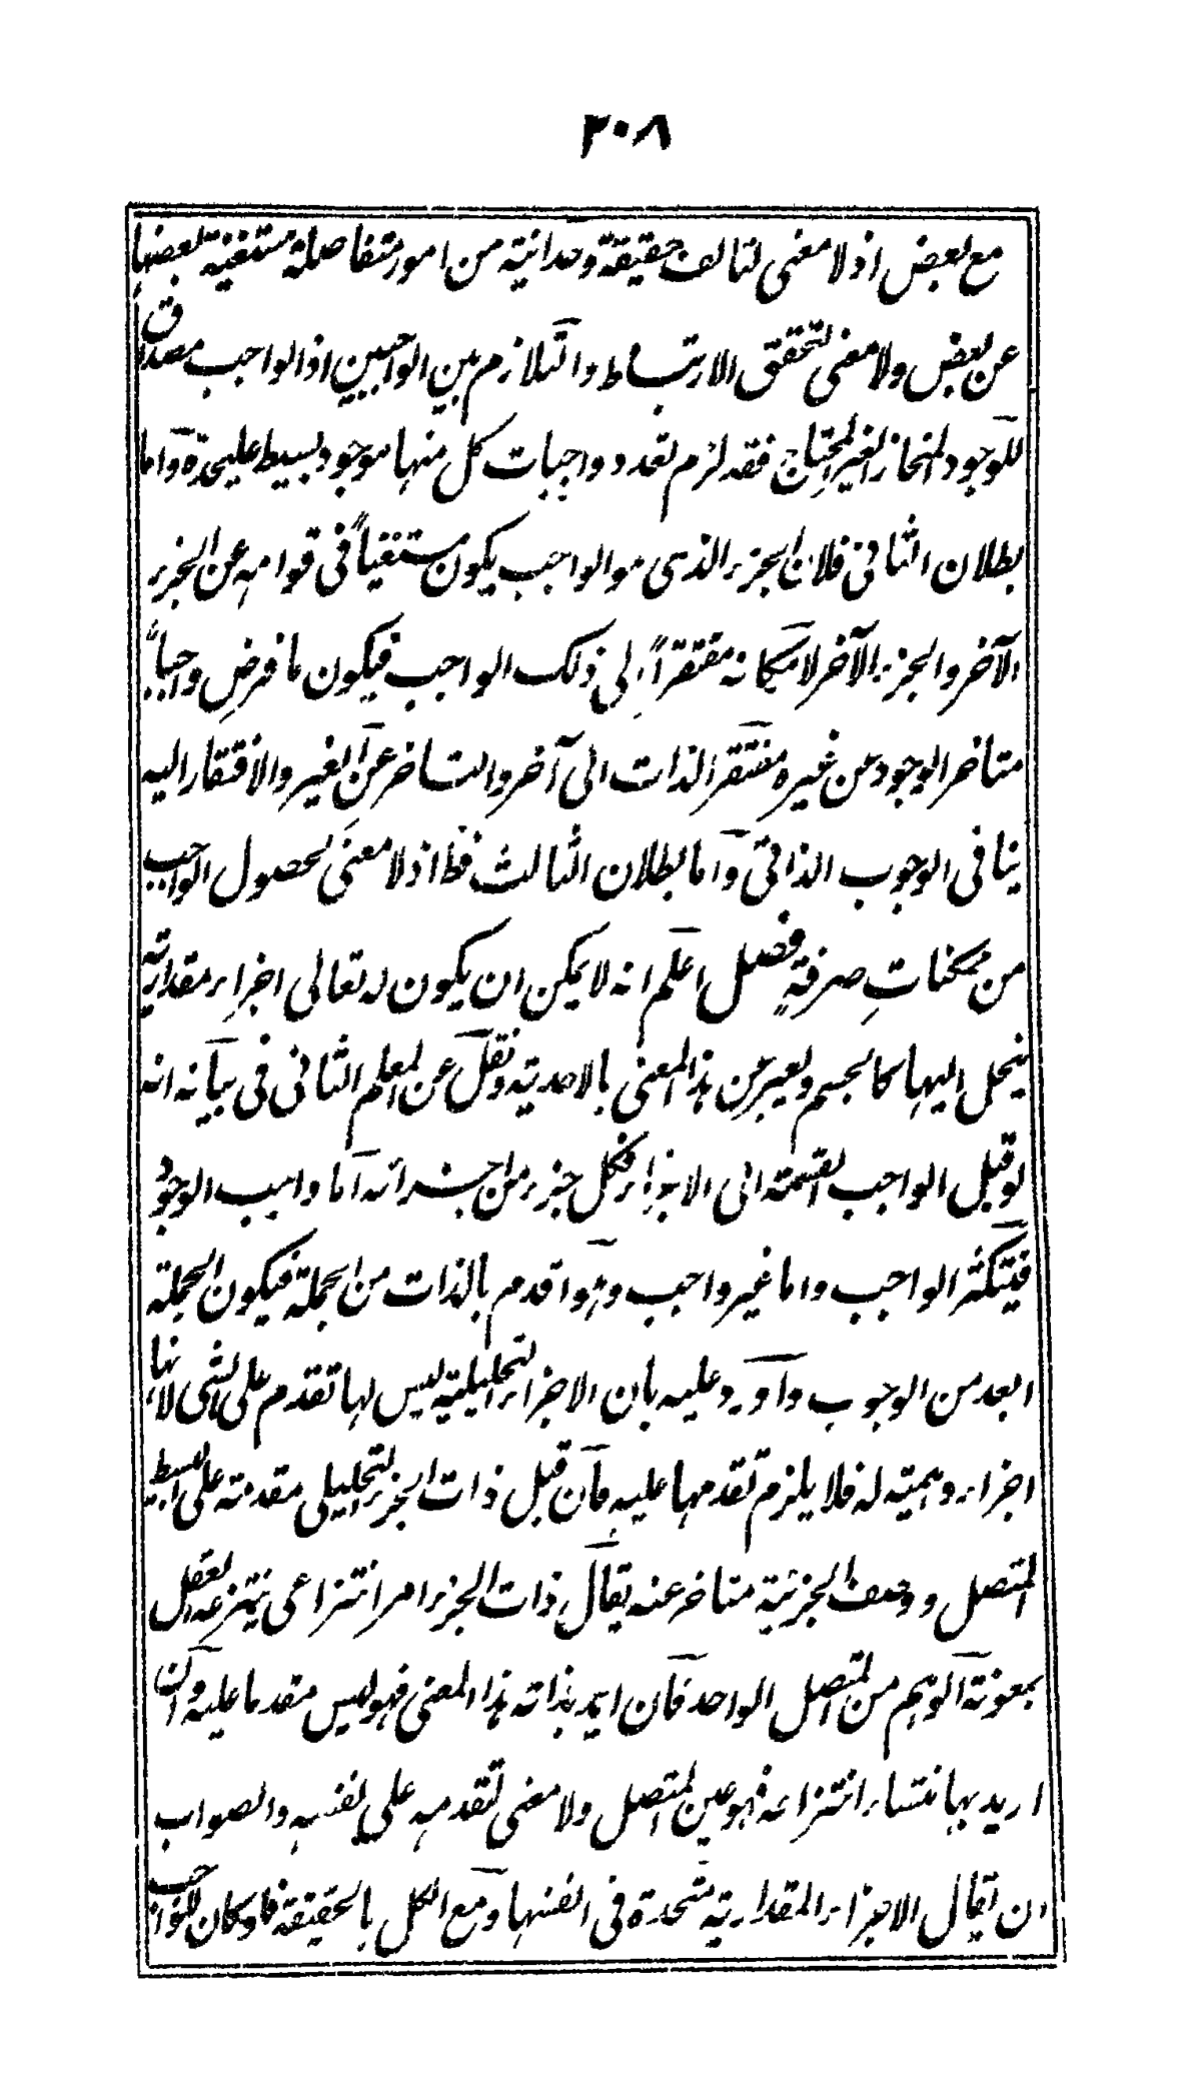 ٢٠٨
مع بعض اذ لا معنى لتالف حقيقة وحدانية من امور متفاصلة مستغنية بعضها
عن بعض ولا معنى لتحقق الارتباط والتلازم بين الواجبين اذ الواجب مصداق
للوجود المنحاز الغير المحتاج فقد لزم تعدد واجبات كل منها موجود بسيط عليحدة واما
بطلان الثانى فلان الجزء الذى هو الواجب يكون مستغنياً فى قوامه عن الجزء
الآخر والجزء الآخر لامكانه مفتقراً الى ذلك الواجب فيكون ما فرض واجباً
متاخر الوجود عن غيره مفتقر الذات الى آخر والتاخر عن الغير والافتقار اليه
ينافى الوجوب الذاتى واما بطلان الثالث فظ اذ لا معنى لحصول الواجب
من ممكنات صرفةٍ فصل اعلم انه لا يمكن ان يكون له تعالى اجزاء مقدارية
ينحل اليها كالجسم ويعبر عن هذا المعنى بالاحدية ونقل عن المعلم الثانى فى بيانه انه
لو قبل الواجب القسمة الى الاجزاء فكل جزء من اجزائه اما واجب الوجود
فيتكثر الواجب واما غير واجب وهو اقدم بالذات من الجملة فيكون الجملة
ابعد من الوجوب واورد عليه بان الاجزاء التحليلية ليس لها تقدم على الشى لانها
اجزاء وهمية له فلا يلزم تقدمها عليه فان قيل ذات الجزء التحليلى مقدمة على البسيط
المتصل ووصف الجزئية متاخر عنه يقال ذات الجزء امر انتزاعى ينتزعه العقل
بمعونة الوهم من المتصل الواحد فان اريد بذاته هذا المعنى فهو ليس مقدما عليه وان
اريد بها منتشاء انتزاعه فهو عين المتصل ولا معنى لتقدمه على نفسه والصواب
ان يقال الاجزاء المقدارية متحدة فى انفسها ومع الكل بالحقيقة فلو كان للواجب